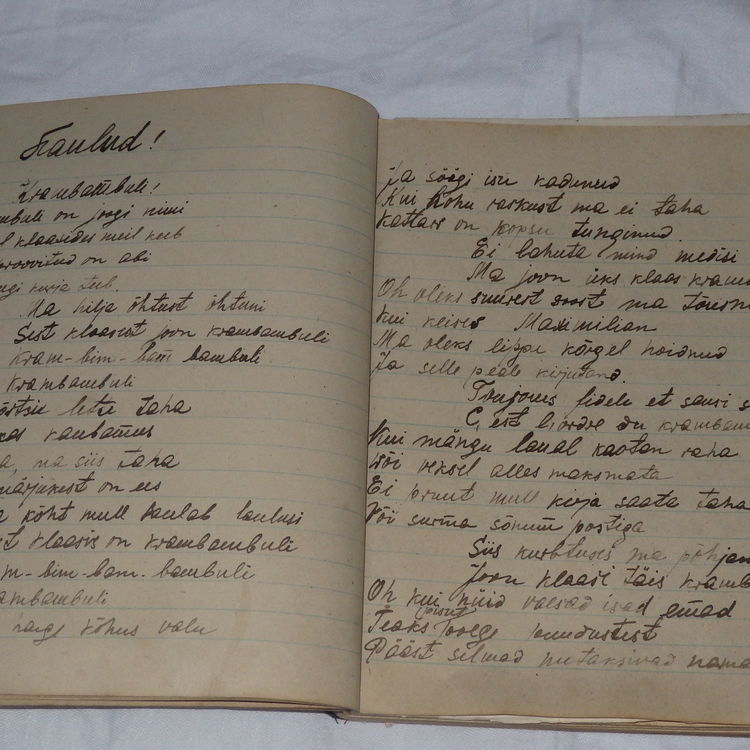 Laulud!
Krambambuli!
mbuli on joogi nimi
klaasides meil keeb
proovitud on abi
kirja teeb.
Ma hilja õhtust õhtuni
Sest klaasist joon krambambuli
Kram-bim-bam bambuli
Krambambuli
letse taha
kaubamees
a, na siis taha
on ees
a kõht mull laulab laulusi
st klaasis on krambambuli
m-bim-bam-bambuli
ambambuli
kõhus valu
Ja söögi isu kadunud
Kui kõhu raskust ma ei taha
Kattars on kopsu tunginud.
Ei lahuta mind medisi
Ma joon üks klaas kramb
Oh oleks suurest soost ma tõusn
Kui keiser Maximilian
Ma oleks lippu kõrgel hoidnud
Ja selle peale kirjutand.
Toujours fidele et sansi s
C, est l,ordre du krambam
Kui mängu laual kaotan raha
Või veksel alles maksmata
Ei pruut mull kirja saata taha
Või surma sõnum postiga
Siis kurbtuses ma põhjan
Joon klaasi täis kramb
Oh kui nüid vaesad isad, emad
Teaks poisut poege puudustest
Pääst silmad